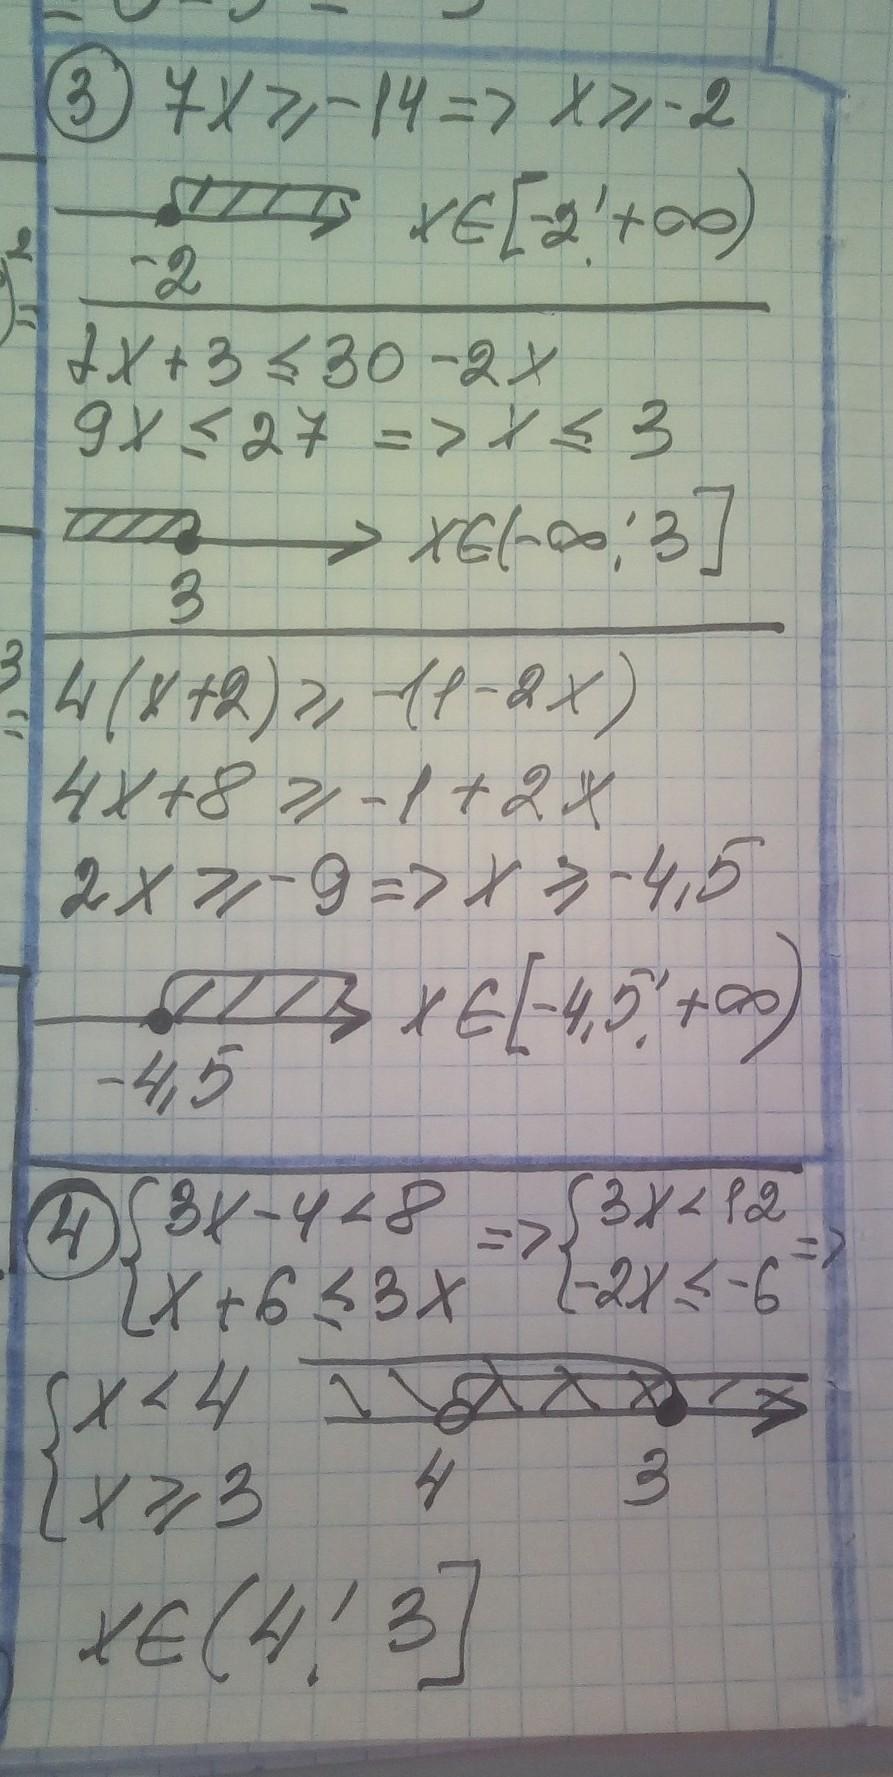 ③ 7x ⩾ -14 => x ⩾ -2
x∈[-2; +∞)
-2
7x + 3 ≤ 30 - 2x
9x ≤ 27 => x ≤ 3
x∈(-∞; 3]
3
4(x+2) ⩾ -(1-2x)
4x+8 ⩾ -1 + 2x
2x ⩾ -9 => x ⩾ -4,5
x∈[-4,5; +∞)
-4,5
④ {3x-4<8 => {3x<12 =>
{x+6≤3x {-2x≤-6
{x<4
{x⩾3
4 3
x∈(4; 3]